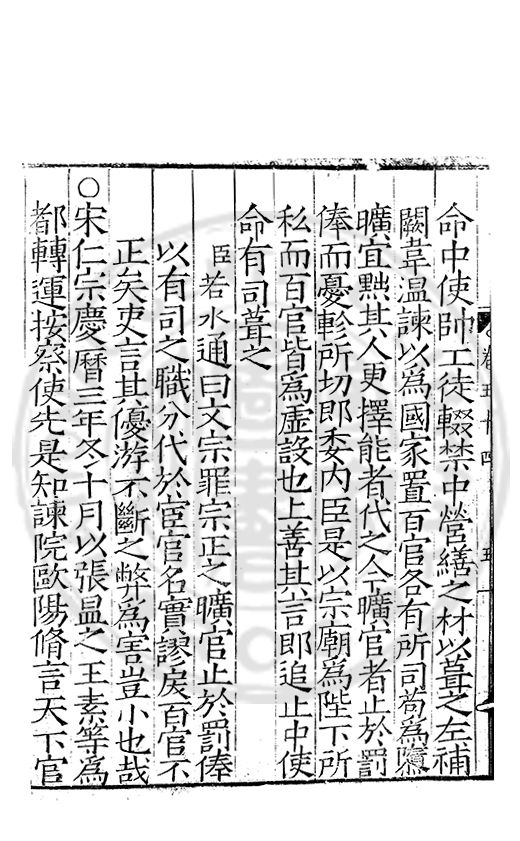 卷五十四
五
命中使帥工徒輟禁中營繕之材以葺之左補
闕韋溫諫以為國家置百官各有所司苟為隳
曠宜黜其人更擇能者代之今曠官者止於罰
俸而憂軫所切即委內臣是以宗廟為陛下所
私而百官皆為虛設也上善其言即追止中使
命有司葺之
臣若水通曰文宗罪宗正之曠官止於罰俸
以有司之職分代於宦官名實謬戾百官不
正矣吏言其優游不斷之弊為害豈小也哉
○宋仁宗慶曆三年冬十月以張昷之王素等為
都轉運按察使先是知諫院歐陽脩言天下官